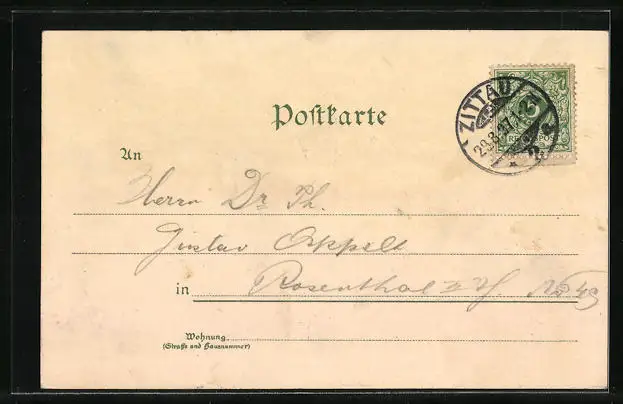 Postkarte
ZITTAU
29.8.97.12
REICHSPOST
5
An
Herrn Dr. Ph.
Gustav Oppelt
in Rosenthal No 49
Wohnung
(Straße und Hausnummer)